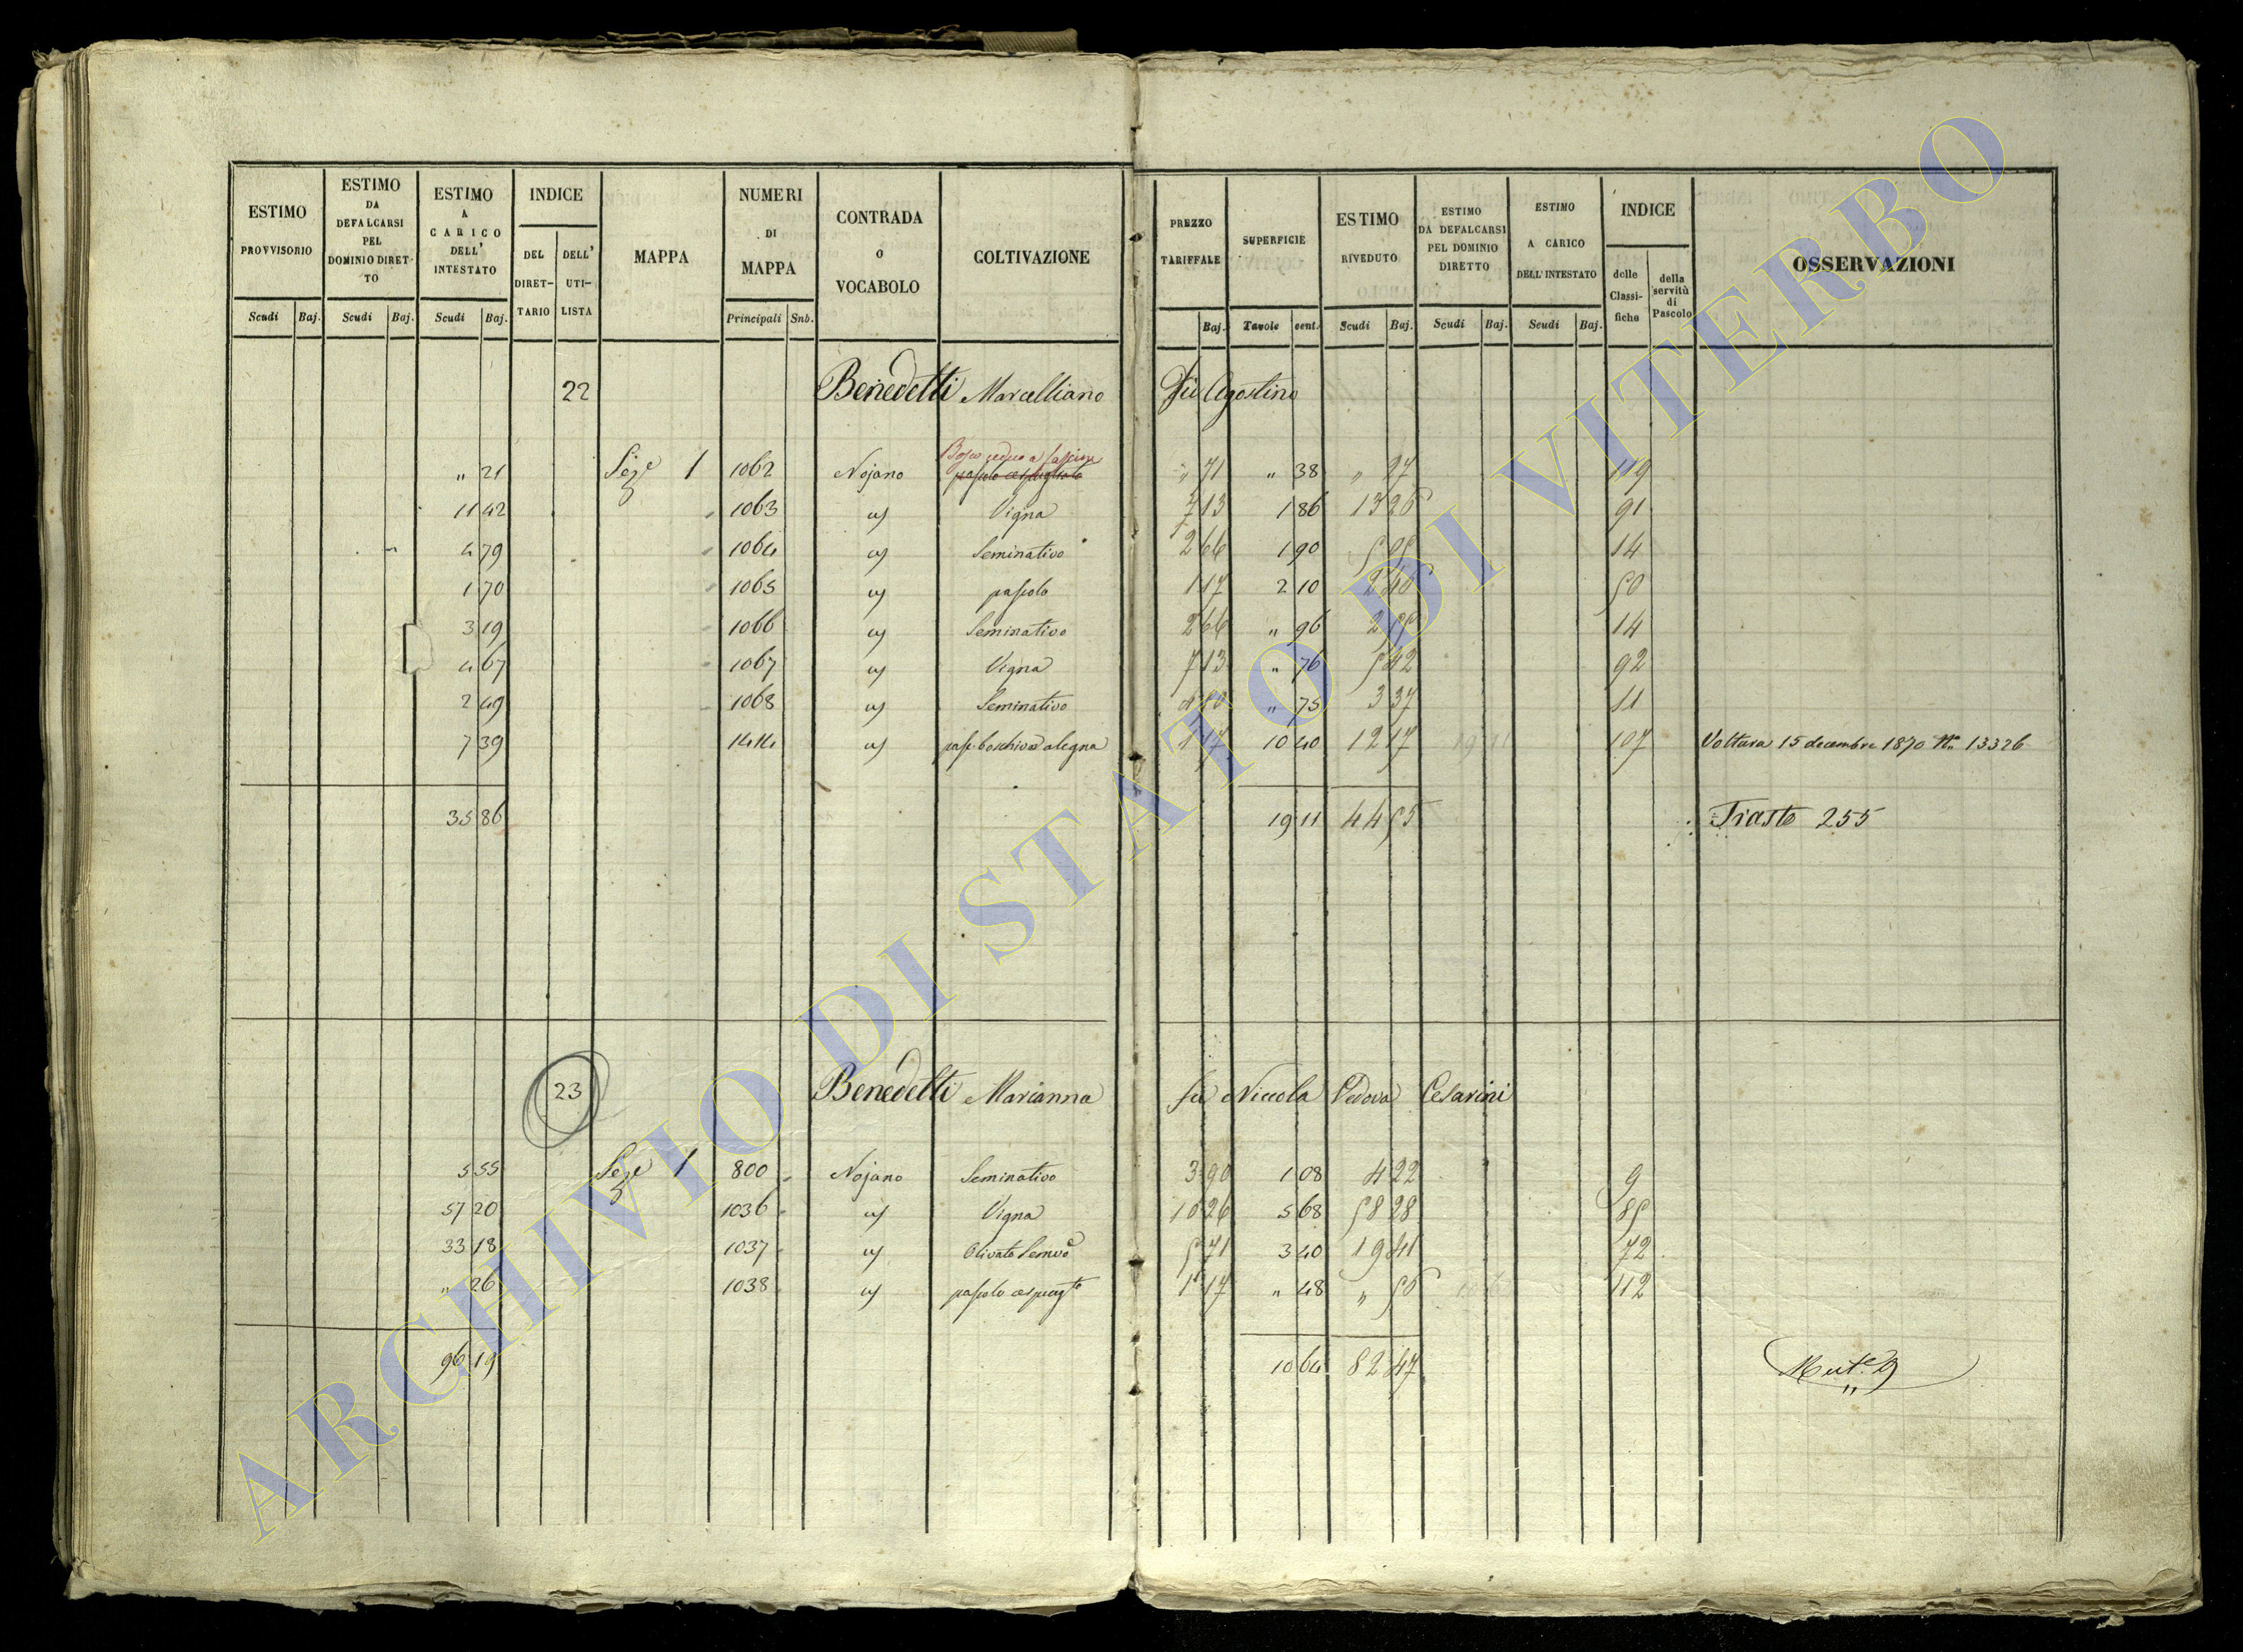 ESTIMO PROVVISORIO Scudi Baj. | ESTIMO DA DEFALCARSI PEL DOMINIO DIRETTO Scudi Baj. | ESTIMO A CARICO DELL' INTESTATO Scudi Baj. | INDICE DEL DIRET-TARIO DELL' UTI-LISTA | MAPPA | NUMERI DI MAPPA Principali Sub. | CONTRADA o VOCABOLO | COLTIVAZIONE | PREZZO TARIFFALE Baj. | SUPERFICIE Tavole cent. | ESTIMO RIVEDUTO Scudi Baj. | ESTIMO DA DEFALCARSI PEL DOMINIO DIRETTO Scudi Baj. | ESTIMO A CARICO DELL' INTESTATO Scudi Baj. | INDICE delle Classifiche della servitù di Pascolo | OSSERVAZIONI
22 Benedetti Marcelliano Fu Agostino
Bosco ceduo a fascine
" 21 Seze 1 1062 Nojano pascolo cespugliato " 71 " 38 " 27 119
11 42 1063 " Vigna 7 13 1 86 13 26 91
4 79 1064 " Seminativo 2 66 1 90 5 05 14
1 70 1065 " pascolo 1 17 2 10 2 46 50
3 19 1066 " Seminativo 2 66 " 96 2 55 14
4 67 1067 " Vigna 7 13 " 76 5 42 92
2 49 1068 " Seminativo " 75 3 37 11
7 39 1414 " pasc. boschivo da legna 1 17 10 40 12 17 107 Voltura 15 decembre 1870 No 13326
35 86 19 11 44 55 Trasto 255
23 Benedetti Marianna fu Niccola Vedova Cesarini
5 55 Seze 1 800 Nojano Seminativo 3 90 1 08 4 22 9
57 20 1036 " Vigna 10 26 5 68 58 28 85
33 18 1037 " Olivato Semvo 5 71 3 40 19 41 72
" 26 1038 " pascolo cespugto 1 17 " 48 " 56 112
96 19 10 64 82 47
ARCHIVIO DI STATO DI VITERBO